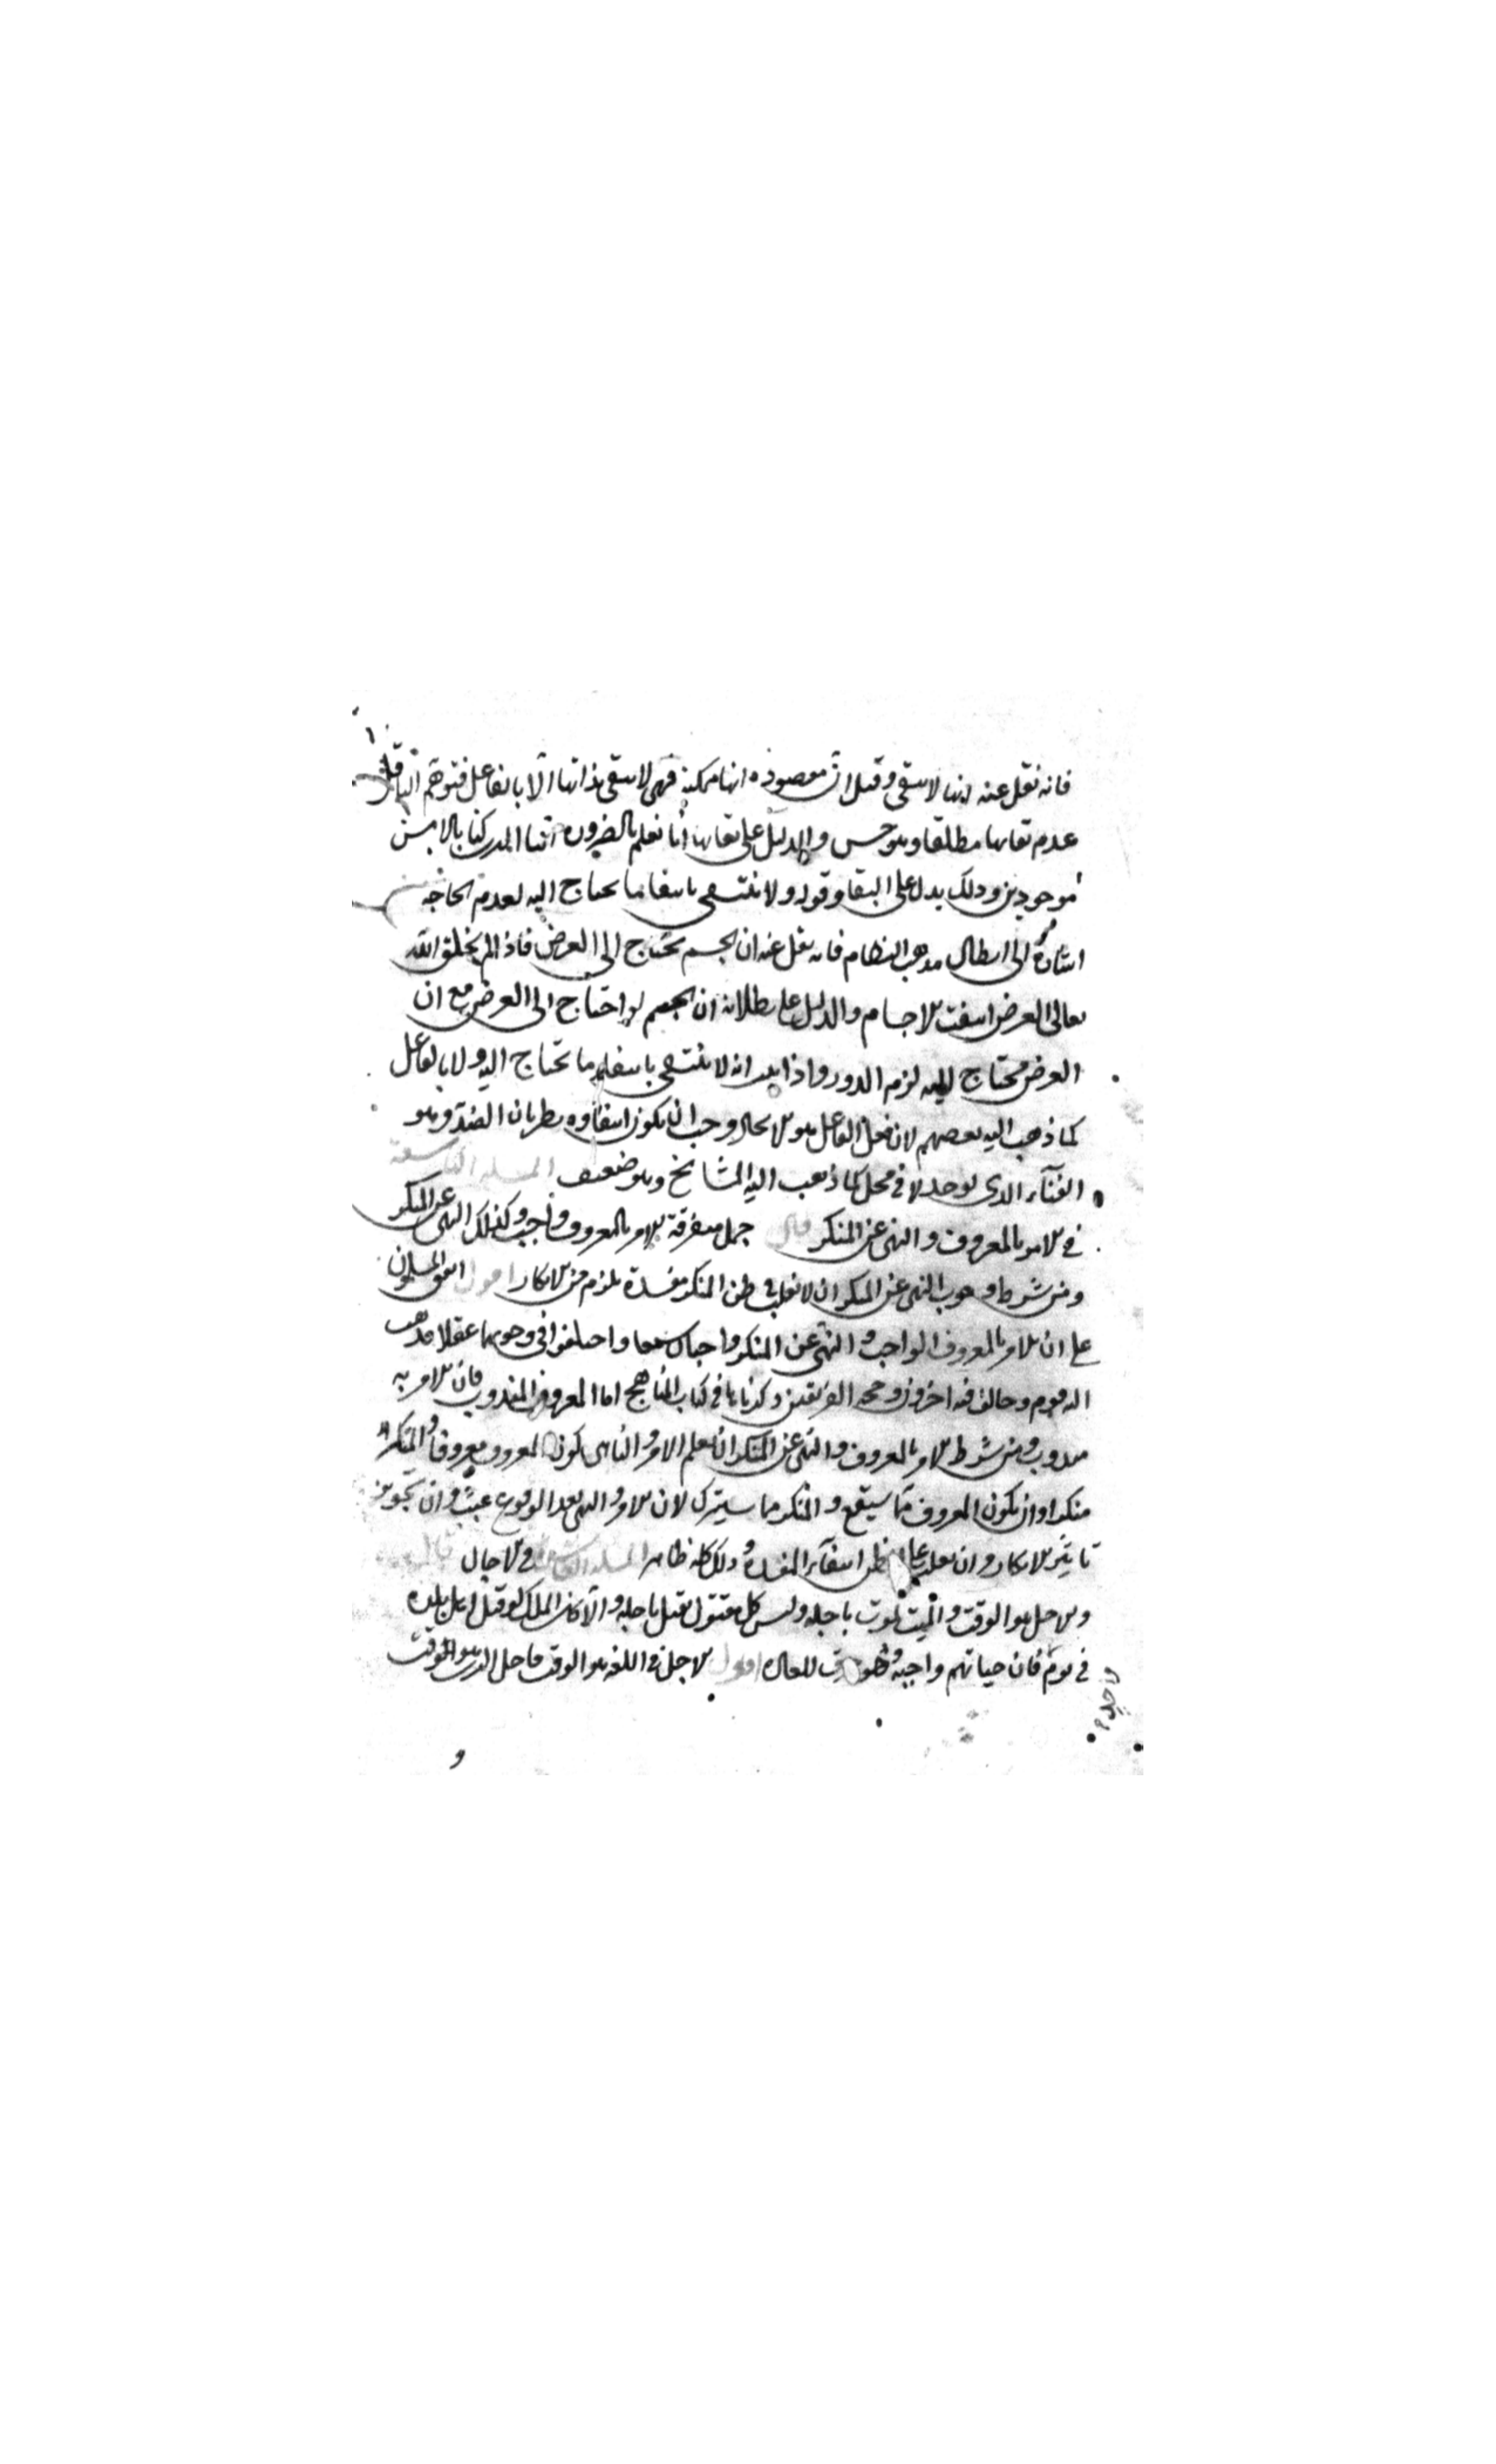 فانه نقل عنه انها لا تبقى وقيل ان مقصوده انها ممكنة فهى لا تبقى بذاتها الا بالفاعل فتوهم الناقل
عدم بقايها مطلقا وهو حسن والدليل على بقايها انا نعلم بالضرورة اننا الذى كنا بالامس
موجودين وذلك يدل على البقا وقوله ولا تنتفى بانتفا ما تحتاج اليه لعدم الحاجه
اشارة الى ابطال مذهب النظام فانه نقل عنه ان الجسم يحتاج الى العرض فاذا لم يخلق الله
تعالى العرض انتفت الاجسام والدليل على بطلانه ان الجسم لو احتاج الى العرض مع ان
العرض محتاج اليه لزم الدور واذا ثبت انه لا تنتفى بانتفا ما تحتاج اليه ولا بالفاعل
كما ذهب اليه بعضهم لان فعل الفاعل هو الايجاد وجب ان يكون انتفاوه بطريان الضد وهو
الفنآء الذى يوجد لا فى محل كما ذهب اليه المشايخ وهو ضعيف المسلة التاسعة
فى الامر بالمعروف والنهى عن المنكر قال جمل متفرقة الامر بالمعروف واجب وكذلك النهى عن المنكر
ومن شرط وجوب النهى عن المنكر ان لا يغلب فى ظن المنكر مفسدة يلزم من الانكار اقول اتفق المسلمون
على ان الامر بالمعروف الواجب والنهى عن المنكر واجبان سمعا واختلفوا فى وجوبهما عقلا فذهب
اليه قوم وخالف فيه اخرون وحجة الفريقين ذكرناها فى كتاب المناهج اما المعروف المندوب فان الامر به
مندوب ومن شرط الامر بالمعروف والنهى عن المنكر ان يعلم الامر والناهى كون المعروف معروفا والمنكر
منكرا وان يكون المعروف مما سيقع والمنكر مما سيترك لان الامر والنهى بعد الوقوع عبث وان تجويز
تاثير الانكار وان يغلب على الظن انتفآء المفسدة وذلك كله ظاهر المسلة العاشرة فى الاجال قال
والاجل هو الوقت والميت يموت باجله وليس كل مقتول يقتل باجله والا كان الملك لو قتل اهل بلده
فى يوم فان حياتهم واجبة وهو للعادة اقول الاجل فى اللغة هو الوقت فاجل الدين هو الوقت